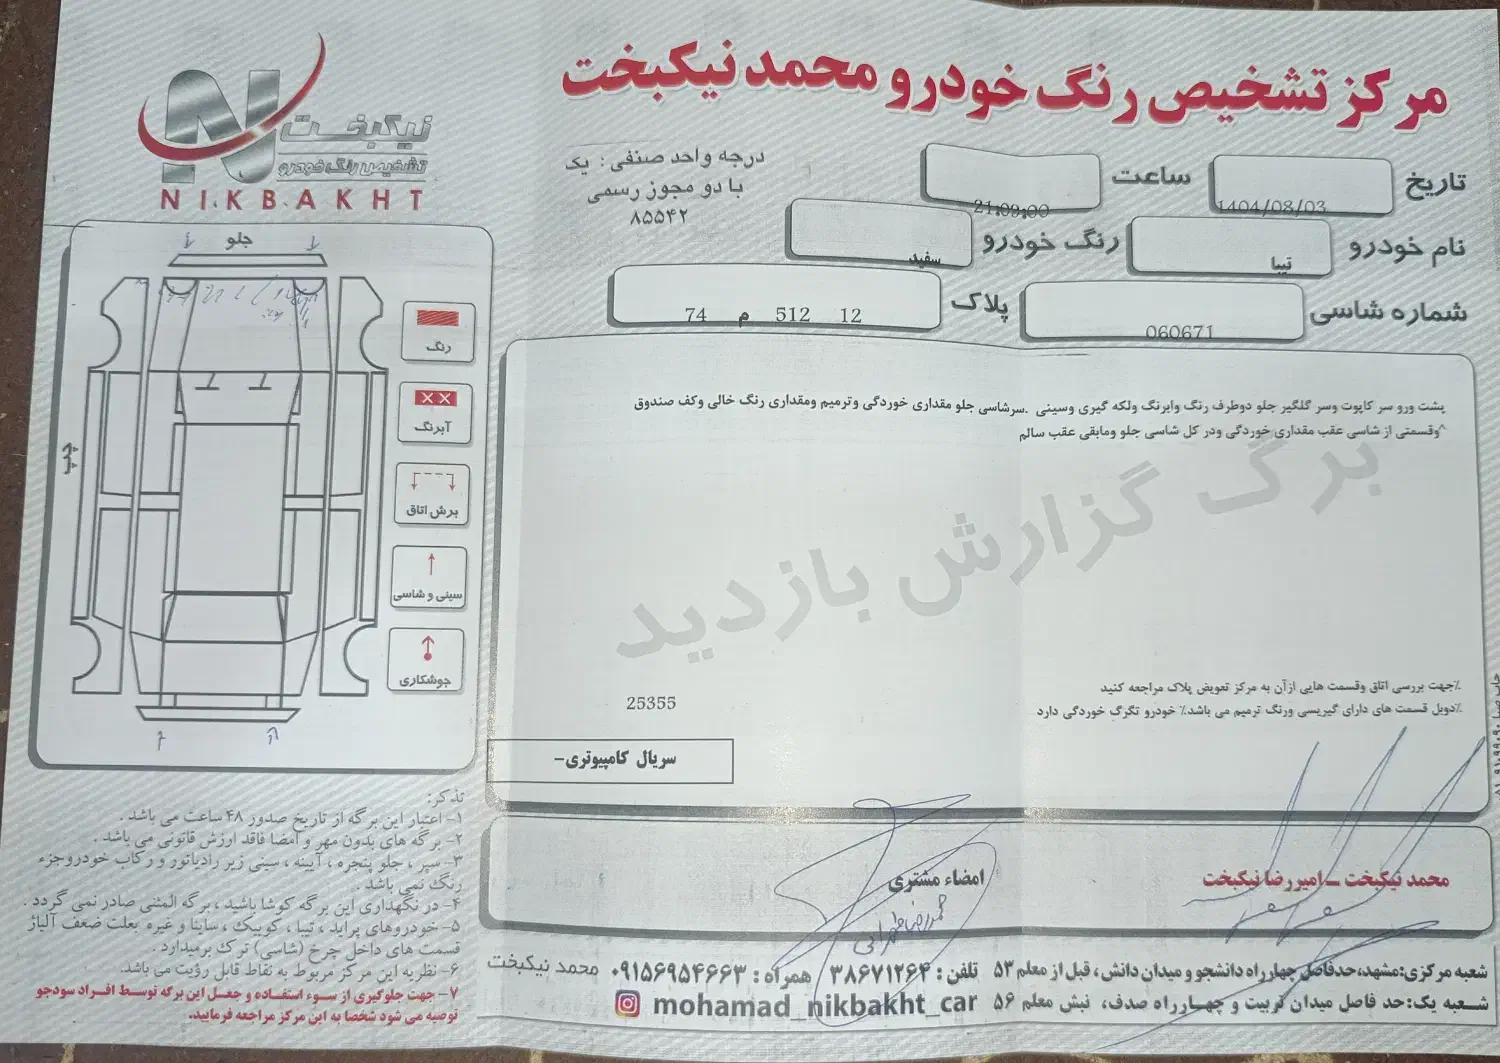 مرکز تشخیص رنگ خودرو محمد نیکبخت
نیکبخت
تشخیص رنگ خودرو
NIKBAKHT
درجه واحد صنفی : یک
با دو مجوز رسمی
۸۵۵۴۲
تاریخ 1404/08/03 ساعت 21:09:00
نام خودرو تیبا رنگ خودرو سفید
شماره شاسی 060671 پلاک 12 512 م 74
پشت ورو سر کاپوت وسر گلگیر جلو دوطرف رنگ وابرنگ ولکه گیری وسینی .سرشاسی جلو مقداری خوردگی وترمیم ومقداری رنگ خالی وکف صندوق
^وقسمتی از شاسی عقب مقداری خوردگی ودر کل شاسی جلو ومابقی عقب سالم
برگ گزارش بازدید
٪جهت بررسی اتاق وقسمت هایی ازآن به مرکز تعویض پلاک مراجعه کنید
٪دوبل قسمت های دارای گیریسی ورنگ ترمیم می باشد٪ خودرو تگرگ خوردگی دارد
25355
سریال کامپیوتری-
جلو
چپ
رنگ
آبرنگ
برش اتاق
سینی و شاسی
جوشکاری
تذکر:
۱- اعتبار این برگه از تاریخ صدور ۴۸ ساعت می باشد .
۲- برگه های بدون مهر و امضا فاقد ارزش قانونی می باشد .
۳- سپر ، جلو پنجره ، آیینه ، سینی زیر رادیاتور و رکاب خودروجزء
رنگ نمی باشد .
۴- در نگهداری این برگه کوشا باشید ، برگه المثنی صادر نمی گردد .
۵- خودروهای پراید ، تیبا ، کوییک ، ساینا و غیره بعلت ضعف آلیاژ
قسمت های داخل چرخ (شاسی) ترک برمیدارد .
۶- نظریه این مرکز مربوط به نقاط قابل رؤیت می باشد.
۷- جهت جلوگیری از سوء استفاده و جعل این برگه توسط افراد سودجو
توصیه می شود شخصا به این مرکز مراجعه فرمایید.
محمد نیکبخت - امیررضا نیکبخت
امضاء مشتری
شعبه مرکزی:مشهد،حدفاصل چهارراه دانشجو و میدان دانش ، قبل از معلم ۵۳ تلفن : ۳۸۶۷۱۲۶۴ همراه : ۰۹۱۵۶۹۵۴۶۶۳ محمد نیکبخت
شعبه یک:حد فاصل میدان تربیت و چهارراه صدف، نبش معلم ۵۶ mohamad_nikbakht_car